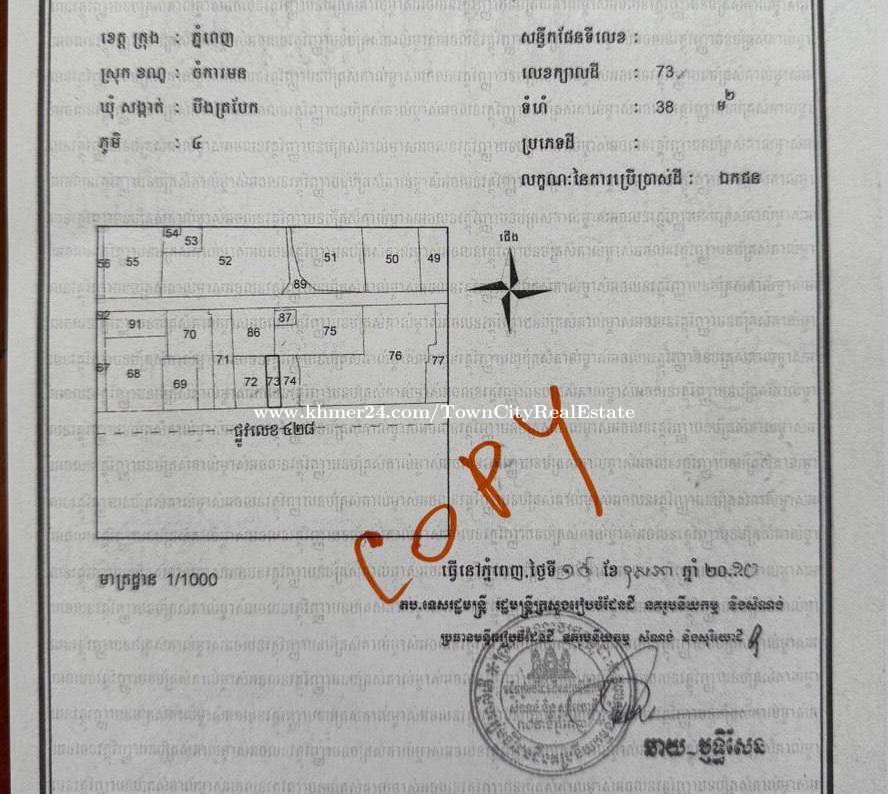 ខេត្ត ក្រុង : ភ្នំពេញ
ស្រុក ខណ្ឌ : ចំការមន
ឃុំ សង្កាត់ : បឹងត្របែក
ភូមិ : ៤
សន្លឹកផែនទីលេខ :
លេខក្បាលដី : 73
ទំហំ : 38 ម២
ប្រភេទដី :
លក្ខណៈនៃការប្រើប្រាស់ដី : ឯកជន
ជើង
54
53
56 55 52 51 50 49
89
92 91 70 86 87 75
76
71 77
67 68 69 72 73 74
www.khmer24.com/TownCityRealEstate
ផ្លូវលេខ ៤២៨
COPY
មាត្រដ្ឋាន 1/1000
ធ្វើនៅភ្នំពេញ.ថ្ងៃទី ១៩ ខែ ឧសភា ឆ្នាំ ២០.២០
តប.ទេសរដ្ឋមន្ត្រី រដ្ឋមន្ត្រីក្រសួងរៀបចំដែនដី នគរូបនីយកម្ម និងសំណង់
ប្រធានមន្ទីររៀបចំដែនដី នគរូបនីយកម្ម សំណង់ និងសុរិយោដី